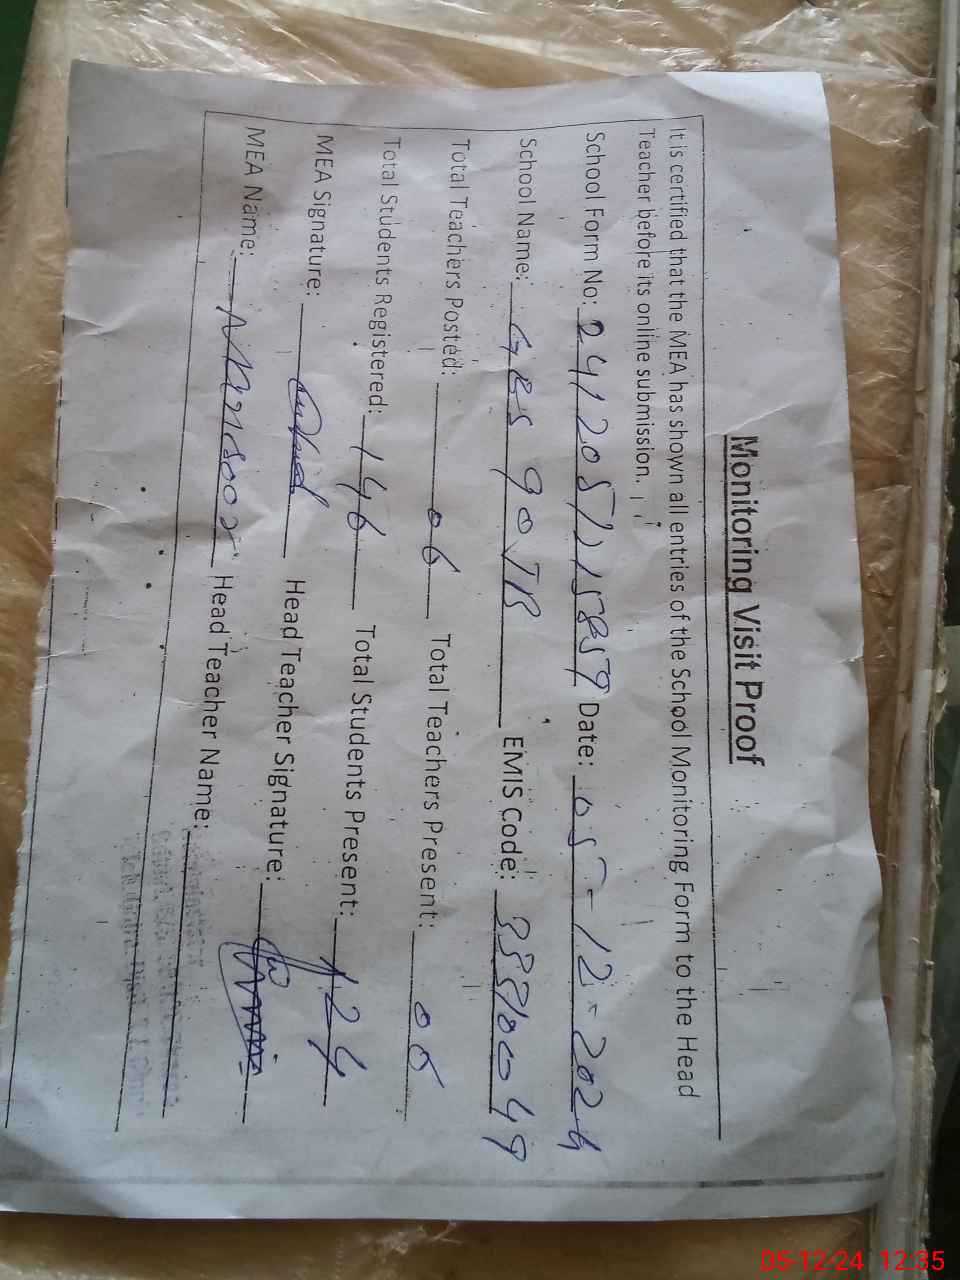 Monitoring Visit Proof
It is certified that the MEA has shown all entries of the School Monitoring Form to the Head
Teacher before its online submission.
School Form No: 241205121585 Date: 05-12-2024
School Name: GES 90TR EMIS Code:
Total Teachers Posted: 06 Total Teachers Present: 06
Total Students Registered: 146 Total Students Present: 124
MEA Signature: Head Teacher Signature:
MEA Name: Mansoor Head Teacher Name:
05-12-24 12:35